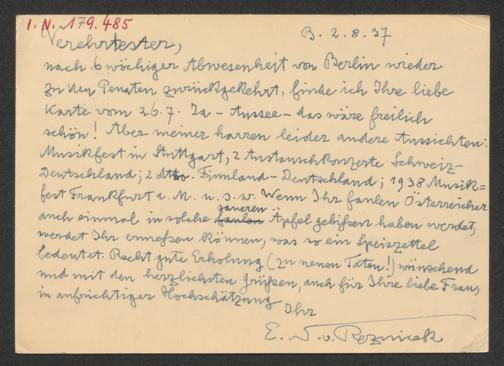 I. N. 179.485
B. 2.8.37
Verehrtester,
nach 6 wöchiger Abwesenheit von Berlin wieder
zu den Penaten zurückgekehrt, finde ich Ihre liebe
Karte vom 26.7. Ja - Aussee - das wäre freilich
schön! Aber meiner harren leider andere Aussichten:
Musikfest in Stuttgart, 2 Austauschkonzerte Schweiz-
Deutschland; 2 dtto. Finnland-Deutschland; 1938 Musik=
fest Frankfurt a. M. u. s. w. Wenn Ihr faulen Österreicher
auch einmal in solche faulen sauren Äpfel gebissen haben werdet,
werdet Ihr ermessen können, was so ein Speiszettel
bedeutet. Recht gute Erholung (zu neuen Taten!) wünschend
und mit den herzlichsten Grüßen, auch für Ihre liebe Frau,
in aufrichtiger Hochschätzung Ihr
E. N. v. Reznicek